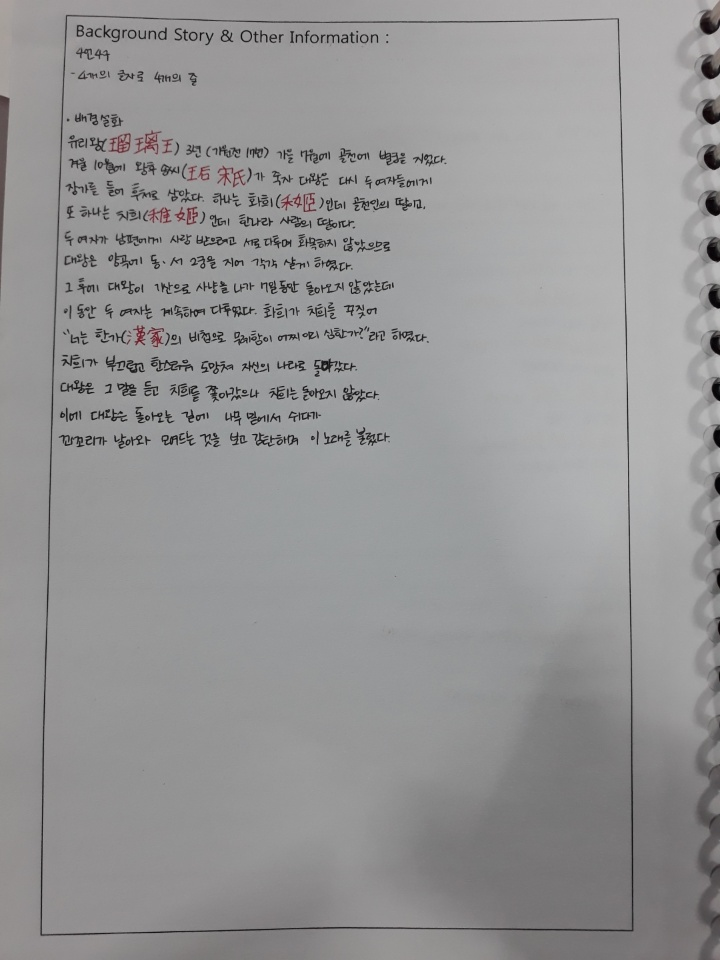 Background Story & Other Information :
4언4구
- 4개의 글자로 4개의 줄
• 배경설화
유리왕(瑠璃王) 3년 (기원전 17년) 가을 7월에 골천에 별궁을 지었다.
겨울 10월에 왕후 송씨(王后 宋氏)가 죽자 대왕은 다시 두 여자들에게
장가를 들어 후처로 삼았다. 하나는 화희(禾姬)인데 골천인의 딸이고,
또 하나는 치희(稚姬)인데 한나라 사람의 딸이다.
두 여자가 남편에게 사랑 받으려고 서로 다투며 화목하지 않았으므로
대왕은 양곡에 동·서 2궁을 지어 각각 살게 하였다.
그 후에 대왕이 기산으로 사냥을 나가 7일동안 돌아오지 않았는데
이 동안 두 여자는 계속하여 다투었다. 화희가 치희를 꾸짖어
"너는 한가(漢家)의 비첩으로 무례함이 어찌 이리 심한가?"라고 하였다.
치희가 부끄럽고 한스러워 도망쳐 자신의 나라로 돌아갔다.
대왕은 그 말을 듣고 치희를 쫓아갔으나 치희는 돌아오지 않았다.
이에 대왕은 돌아오는 길에 나무 밑에서 쉬다가
꾀꼬리가 날아와 모여드는 것을 보고 감탄하며 이 노래를 불렀다.